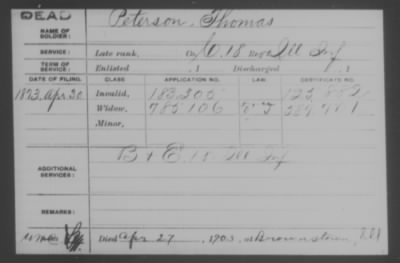 DEAD
Peterson, Thomas
NAME OF SOLDIER:
SERVICE: Late rank, Co. 18 Reg't Ill Inf
TERM OF SERVICE: Enlisted , 1 Discharged , 1
DATE OF FILING. CLASS APPLICATION NO. LAW CERTIFICATE NO.
1873, Apr. 30 Invalid, 183.305
Widow, 785.106
Minor,
ADDITIONAL SERVICES: B & E. 18 Ill Inf
REMARKS:
Died Apr 27, 1903, at Brownstown, Ill